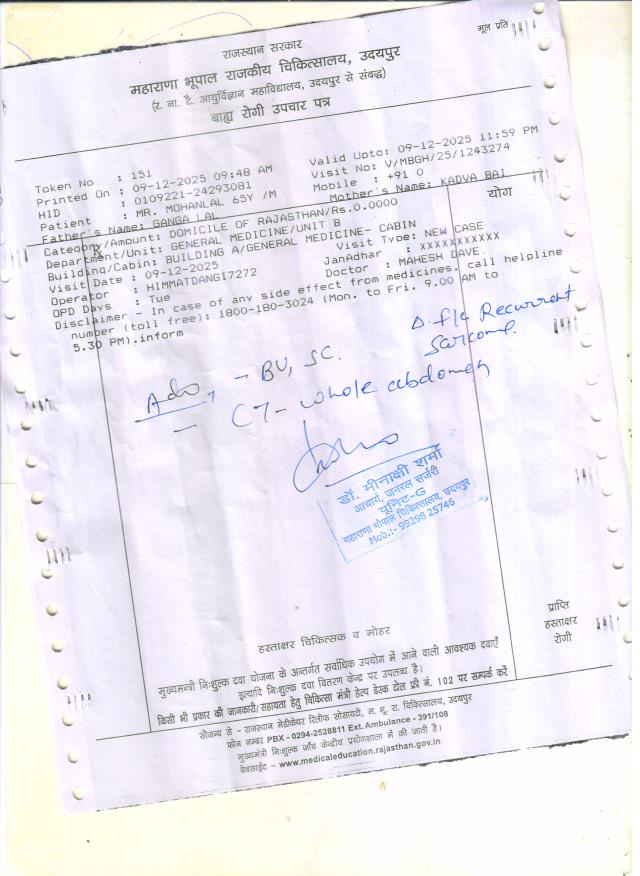 मूल प्रति
राजस्थान सरकार
महाराणा भूपाल राजकीय चिकित्सालय, उदयपुर
(र. ना. टै. आयुर्विज्ञान महाविद्यालय, उदयपुर से संबद्ध)
बाह्य रोगी उपचार पत्र
Token No : 151
Valid Upto: 09-12-2025 11:59 PM
Printed On : 09-12-2025 09:48 AM
Visit No: V/MBGH/25/1243274
HID : 0109221-24293081
Mobile : +91 0
Patient : MR. MOHANLAL 65Y /M
Mother's Name: KADVA BAI
Father's Name: GANGA LAL
योग
Category/Amount: DOMICILE OF RAJASTHAN/Rs.0.0000
Department/Unit: GENERAL MEDICINE/UNIT B
Building/Cabin: BUILDING A/GENERAL MEDICINE- CABIN
Visit Date : 09-12-2025
Visit Type: NEW CASE
Operator : HIMMATDANGI7272
JanAdhar : XXXXXXXXXXX
OPD Days : Tue
Doctor : MAHESH DAVE
Disclaimer - In case of any side effect from medicines, call helpline
number (toll free): 1800-180-3024 (Mon. to Fri. 9.00 AM to
5.30 PM).inform
Recurrent
Adv - BU, SC.
- CT- whole abdomen
डॉ. मीनाक्षी शर्मा
आचार्य, जनरल सर्जरी
यूनिट-G
महाराणा भोपाल चिकित्सालय, उदयपुर
Mob.:- 99298 25746
प्राप्ति
हस्ताक्षर
रोगी
हस्ताक्षर चिकित्सक व मोहर
मुख्यमन्त्री निःशुल्क दवा योजना के अन्तर्गत सर्वाधिक उपयोग में आने वाली आवश्यक दवाएँ
इत्यादि निःशुल्क दवा वितरण केन्द्र पर उपलब्ध है।
किसी भी प्रकार की जानकारी/सहायता हेतु चिकित्सा मंत्री हेल्प डेस्क टोल फ्री नं. 102 पर सम्पर्क करें
सौजन्य से - राजस्थान मेडीकेयर रिलीफ सोसायटी, म. भू. रा. चिकित्सालय, उदयपुर
फोन नम्बर PBX - 0294-2528811 Ext. Ambulance - 391/108
मुख्यमंत्री निःशुल्क जाँच केन्द्रीय प्रयोगशाला में की जाती है।
वेबसाईट - www.medicaleducation.rajasthan.gov.in